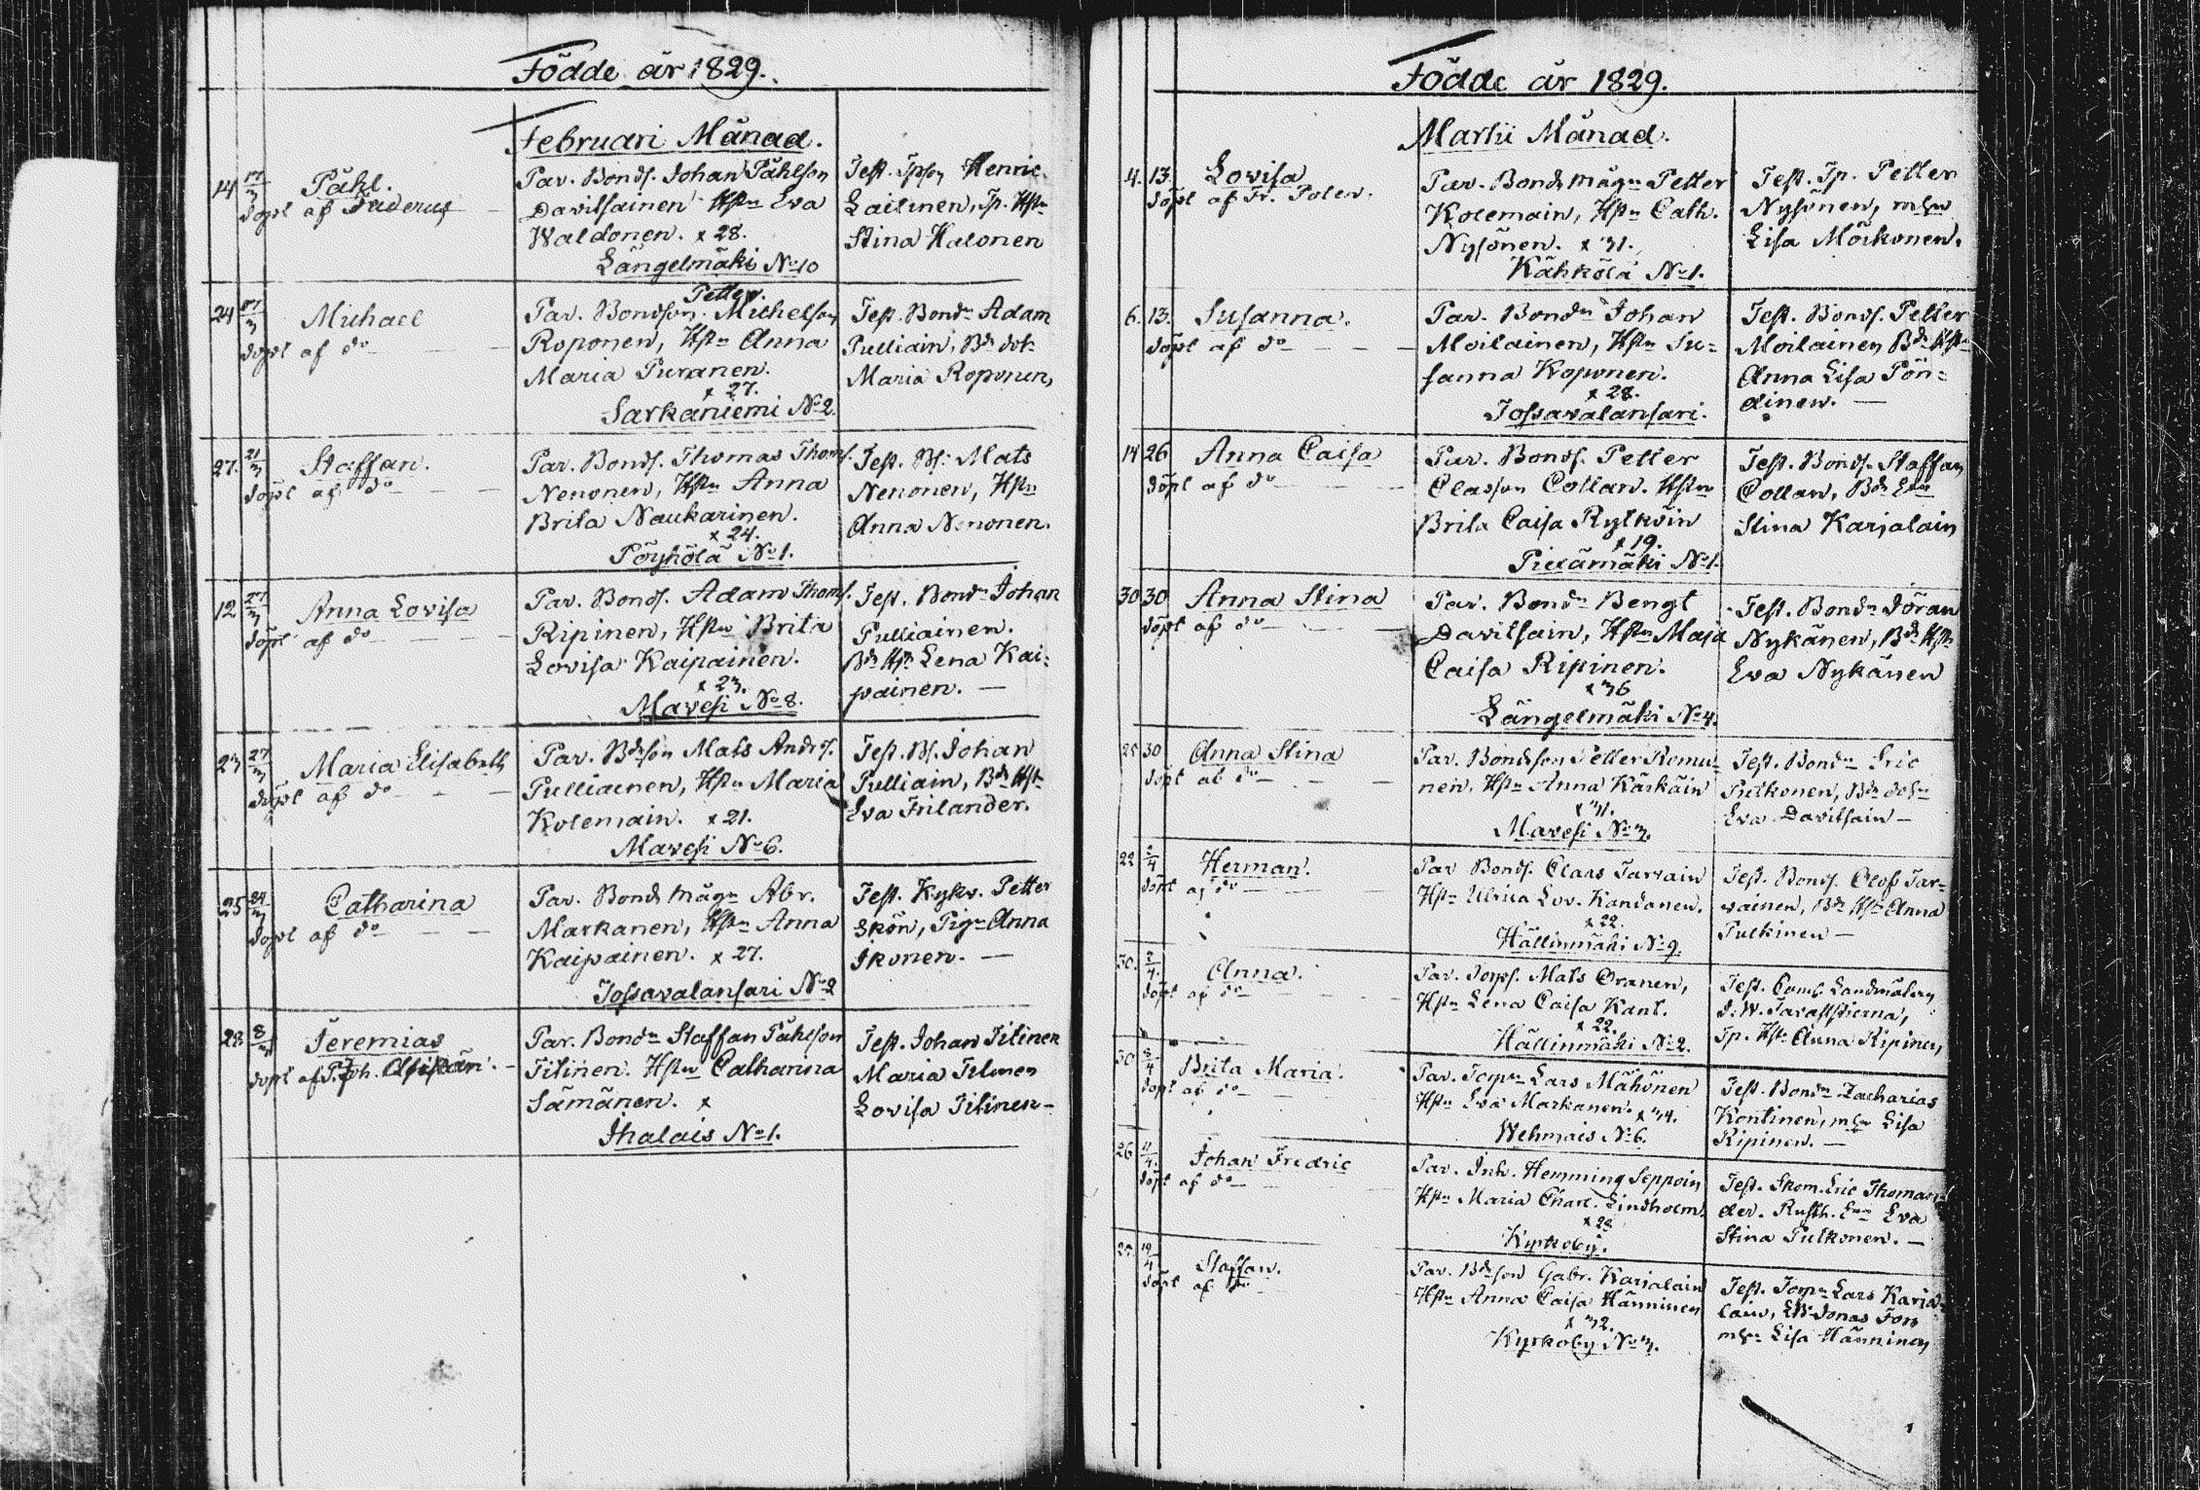 Födde år 1829.
Februari Månad.
14 17/3 Påhl.
döpt af
Par. Bonds. Johan Påhlson
Davitsainen Hstn Eva
Waldonen. x 28.
Längelmäki No 10
Test. Henric
Laitinen, Tp. Hstn
Stina Halonen
24 Michael
döpt af do
Petter.
Par. Bondson. Michelson
Roponen, Hstn Anna
Maria Puranen.
x 27.
Sarkaniemi No 2.
Test. Bondn Adam
Pulliain, Bds dotr
Maria Roponen,
27. 21/3 Staffan.
döpt af do
Par. Bonds. Thomas Thoms.
Nenonen, Hstn Anna
Brita Naukarinen.
x 24.
Pöyhölä No 1.
Test. Bs. Mats
Nenonen, Hstn
Anna Nenonen.
12 27/3 Anna Lovisa
döpt af do
Par. Bonds. Adam Thoms.
Ripinen, Hstn Brita
Lovisa Kaipainen.
x 23.
Mavesi No 8.
Test. Bondn Johan
Pulliainen.
Bds Hstr Lena Kai-
painen. —
23 27/3 Maria Elisabeth
döpt af do
Par. Bdsson Mats Andrs.
Pulliainen, Hstn Maria
Kolemain. x 21.
Mavesi No 6.
Test. Bs. Johan
Pulliain, Bds Hstr
Eva Frilander.
25 24/3 Catharina
döpt af do
Par. Bonds mågn Abr.
Markanen, Hstn Anna
Kaipainen. x 27.
Jossavalansari No 2
Test. Kykv. Petter
Skön, Pign Anna
Ikonen. —
28. 8/3 Jeremias
döpt af
Par. Bondn Staffan Påhlson
Titinen. Hstn Catharina
Sämänen. x
Ihalais No 1.
Test. Johan Titinen
Maria Titinen
Lovisa Titinen -
Födde år 1829.
Martii Månad.
4. 13. Lovisa
döpt af Fr. Poler.
Par. Bonds mågn Petter
Kolemain, Hstn Cath.
Nysönen. x 31.
Kähkölä No 1.
Test. Tp. Petter
Nysönen, mhn
Lisa Mörkonen.
6. 13. Susanna.
döpt af do
Par. Bondn Johan
Moilainen, Hstn Su-
sanna Koponen.
x 28.
Jossavalansari.
Test. Bonds. Petter
Moilainen Bds Hstr
Anna Lisa Pön-
dinen. —
14 26 Anna Caisa
döpt af do
Par. Bonds. Petter
Classon Collan. Hstn
Brita Caisa Rytköin
x 19.
Piexämäki No 1.
Test. Bonds. Staffan
Collan, Bds Enk
Stina Karjalain
30 30 Anna Stina
döpt af do
Par. Bondn Bengt
Davitsain, Hstn Maja
Caisa Ripinen.
x 36
Längelmäki No 4.
Test. Bondn Göran
Nykänen, Bds Hstr
Eva Nykänen
25 30 Anna Stina
döpt af do
Par. Bondsson Petter Romu-
nen, Hstn Anna Käskäin
x 31.
Mavesi No 3.
Test. Bondn Eric
Pulkonen, Bds dotr
Eva Davitsain —
22 2/4 Herman.
döpt af do
Par Bonds. Claas Tarvain
Hstn Ulrica Lov. Kandanen.
x 22.
Hällinmäki No 9.
Test. Bonds. Olof Tar-
vainen, Bds Hstr Anna
Pulkinen —
30. 2/4. Anna.
döpt af do
Par. Torps. Mats Oranen,
Hstn Lena Caisa Kant.
x 22.
Hällinmäki No 2.
Test. Com. Landmätern
G. W. Tavaststierna,
Tp. Hstr Anna Ripinen,
30 8/4 Brita Maria.
döpt af do
Par. Torpn Lars Mähönen
Hstn Eva Markanen. x 34.
Wehmais No 6.
Test. Bondn Zacharias
Kontinen, mhn Lisa
Ripinen. —
26 11/4. Johan Fredric
döpt af do
Par. Inh. Hemming Seppoin
Hstn Maria Charl. Lindholm.
x 28
Kyrkoby.
Test. Skom. Eric Thoman-
der. Rusth. Enk Eva
Stina Pulkonen. —
27. 19/4 Staffan.
döpt af do
Par. Bdsson Gabr. Karjalain
Hstn Anna Caisa Hänninen
x 32.
Kyrkoby No 3.
Test. Torpn Lars Karja-
lain, Jonas Fors
mhn Lisa Hänninen